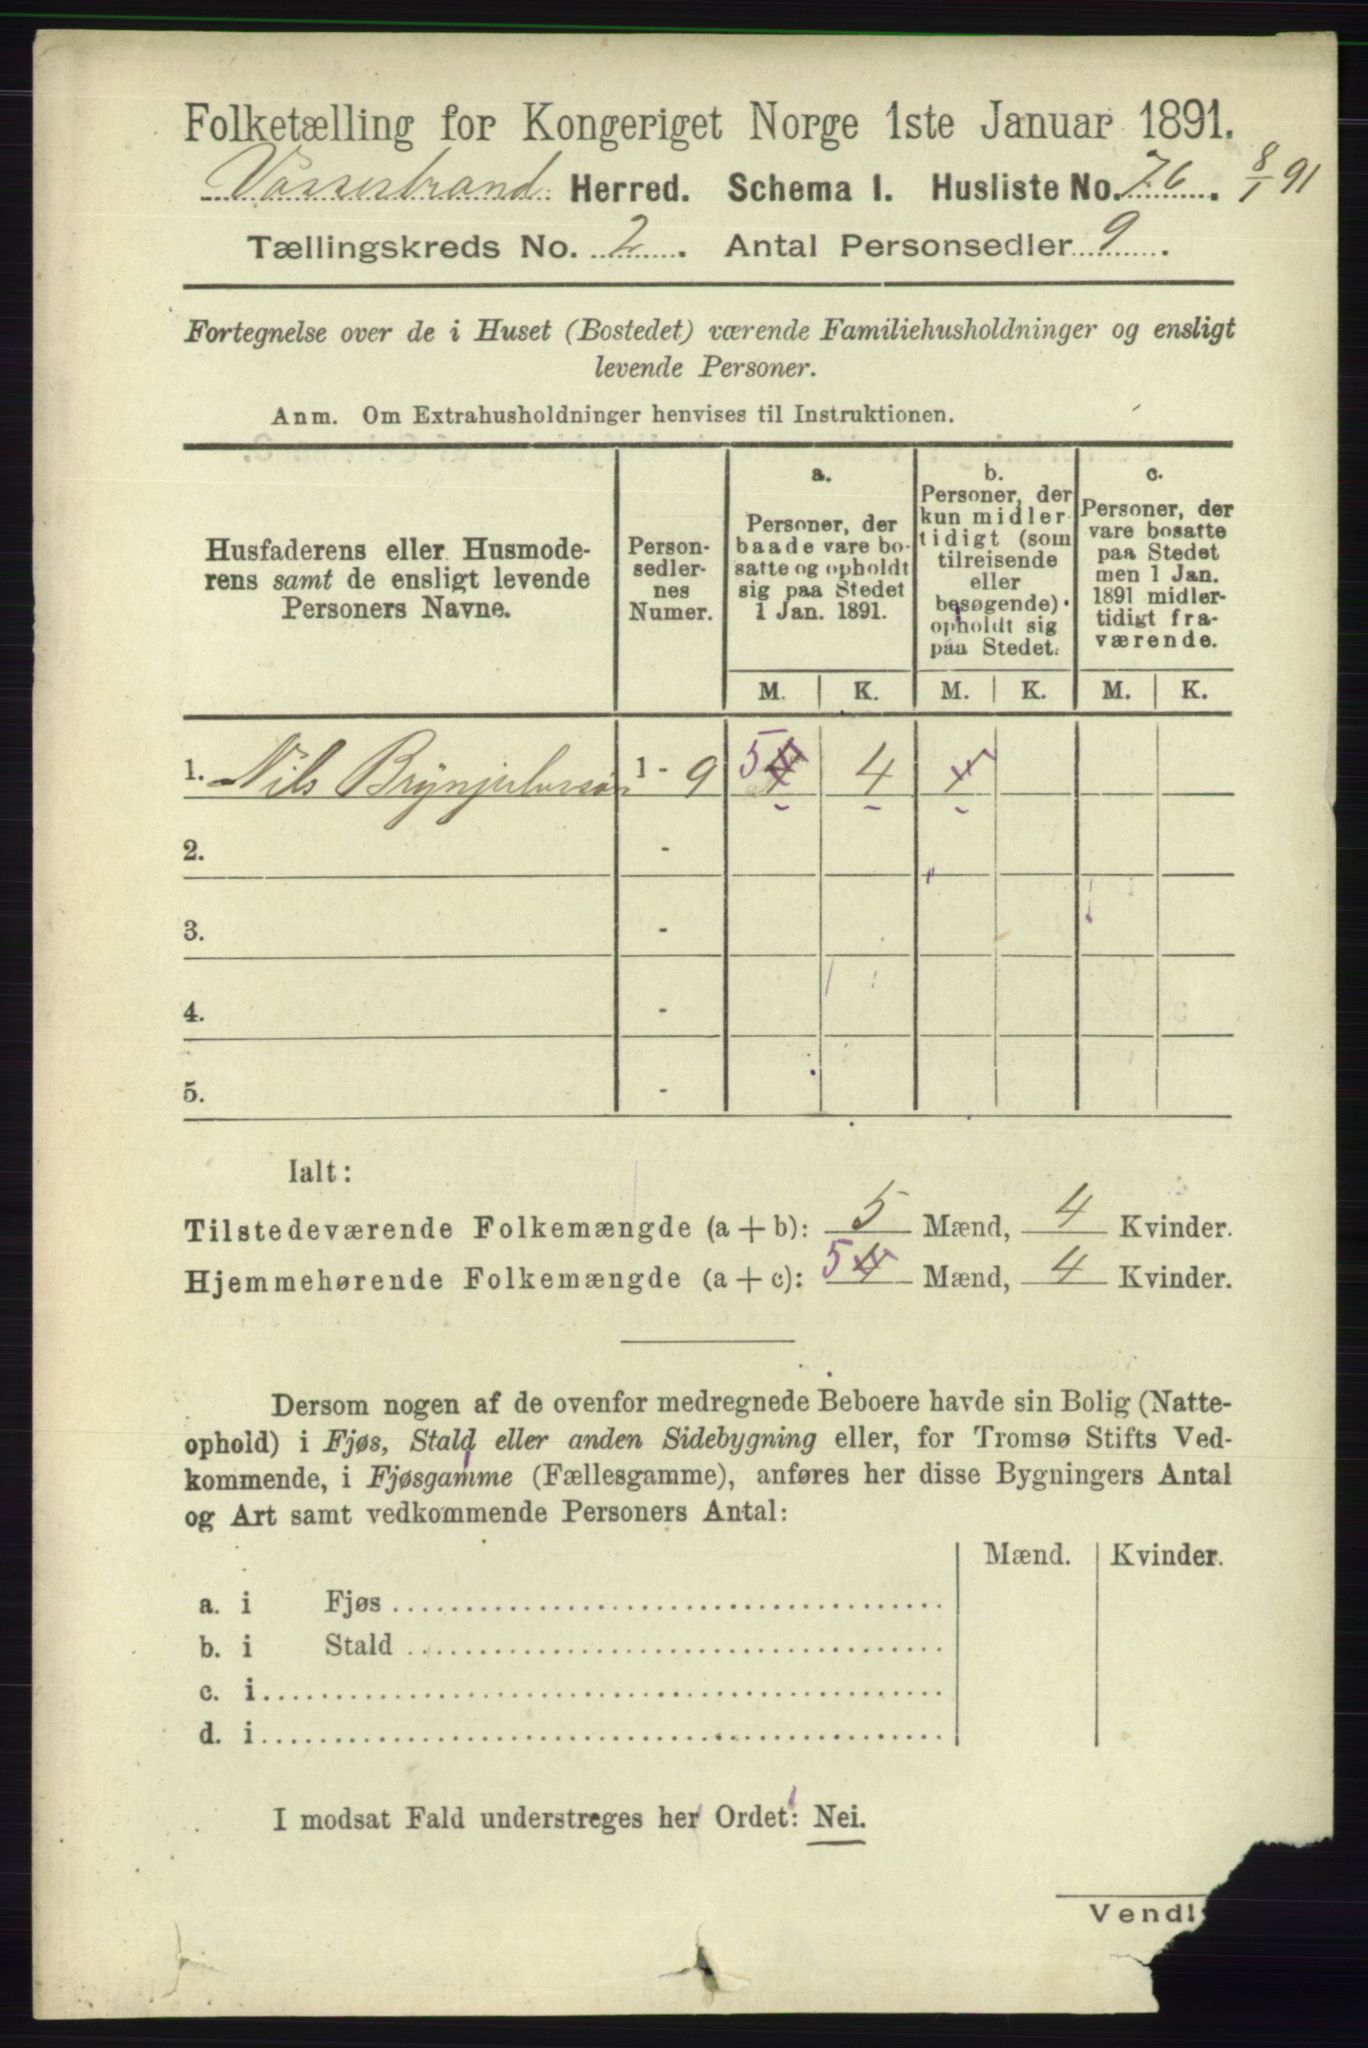 Folketælling for Kongeriget Norge 1ste Januar 1891.
Vossestrand Herred. Schema 1. Husliste No. 76. 8/1 91
Tællingskreds No. 2. Antal Personsedler 9.
Fortegnelse over de i Huset (Bostedet) værende Familiehusholdninger og ensligt
levende Personer.
Anm. Om Extrahusholdninger henvises til Instruktionen.
Husfaderens eller Husmode-
rens samt de ensligt levende
Personers Navne.
Person-
sedler-
nes
Numer.
a.
Personer, der
baade vare bo-
satte og opholdt
sig paa Stedet
1 Jan. 1891.
b.
Personer, der
kun midler-
tidigt (som
tilreisende
eller
besøgende)
opholdt sig
paa Stedet.
c.
Personer, der
vare bosatte
paa Stedet
men 1 Jan.
1891 midler-
tidigt fra-
værende.
M. K. M. K. M. K.
1. Nils Brynjulvssøn 1 - 9 5 4 4 1
2. -
3. -
4. -
5. -
Ialt:
Tilstedeværende Folkemængde (a + b): 5 Mænd, 4 Kvinder.
Hjemmehørende Folkemængde (a + c): 5 4 Mænd, 4 Kvinder.
Dersom nogen af de ovenfor medregnede Beboere havde sin Bolig (Natte-
ophold) i Fjøs, Stald eller anden Sidebygning eller, for Tromsø Stifts Ved-
kommende, i Fjøsgamme (Fællesgamme), anføres her disse Bygningers Antal
og Art samt vedkommende Personers Antal:
Mænd. Kvinder.
a. i Fjøs
b. i Stald
c. i
d. i
I modsat Fald understreges her Ordet: Nei.
Vend!